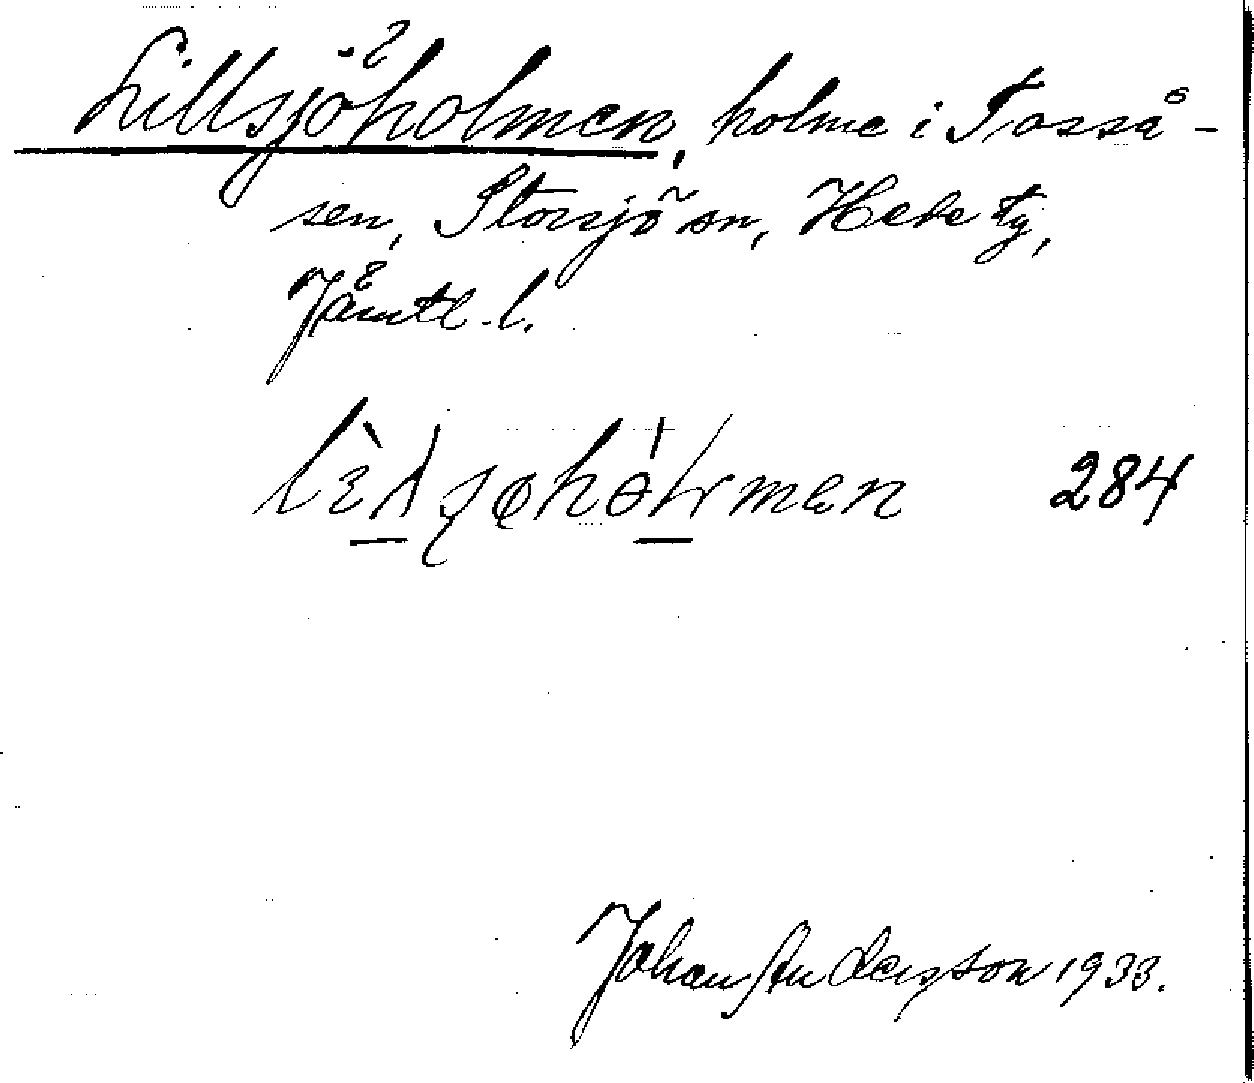 Lillsjöholmen, holme i Tosså-
sen, Storsjö sn, Hede tg,
Jämtl. l.
284
Johan Anderson 1933.